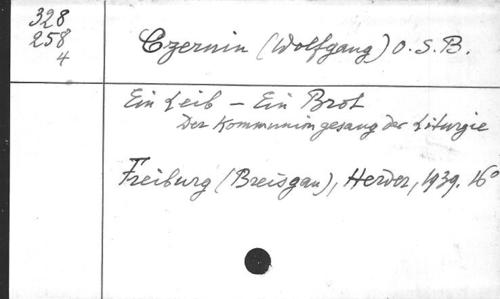 328
258
4
Czernin (Wolfgang) O.S.B.
Ein Leib – Ein Brot
Der Kommuniongesang der Liturgie
Freiburg (Breisgau), Herder, 1939. 16°